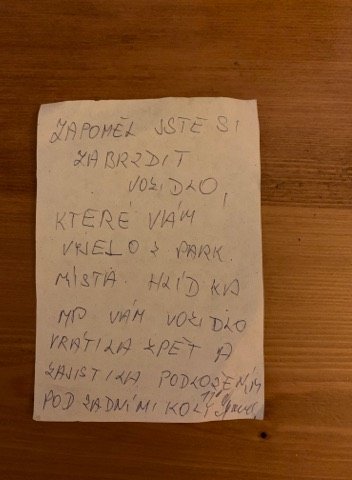 ZAPOMĚL JSTE SI
ZABRZDIT
VOZIDLO,
KTERÉ VÁM
VYJELO Z PARK.
MÍSTA. HLÍDKA
MP VÁM VOZIDLO
VRÁTILA ZPĚT A
ZAJISTILA PODLOŽENÍM
POD ZADNÍMI KOLY